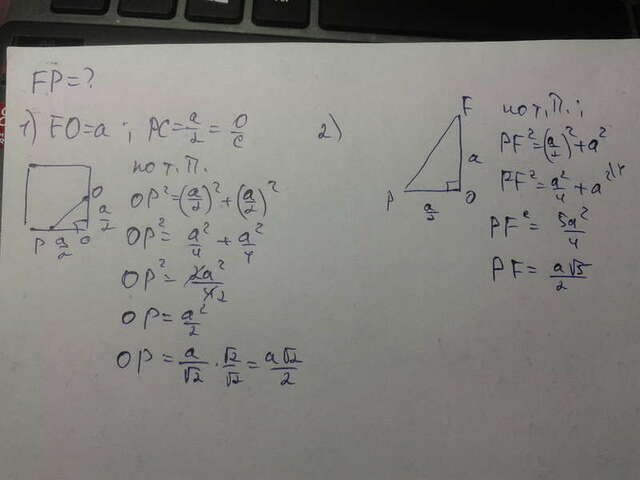 FP=?
1) FO=a; PC=a/2=O/C
по т. П.
OP²=(a/2)²+(a/2)²
OP²=a²/4+a²/4
OP²=2a²/4 2
OP=a²/2
OP=a/√2·√2/√2=a√2/2
O
a/2
P a/2 O
2)
F
a
P O
a/2
по т. П.:
PF²=(a/2)²+a²
PF²=a²/4+a² |4
PF²=5a²/4
PF=a√5/2